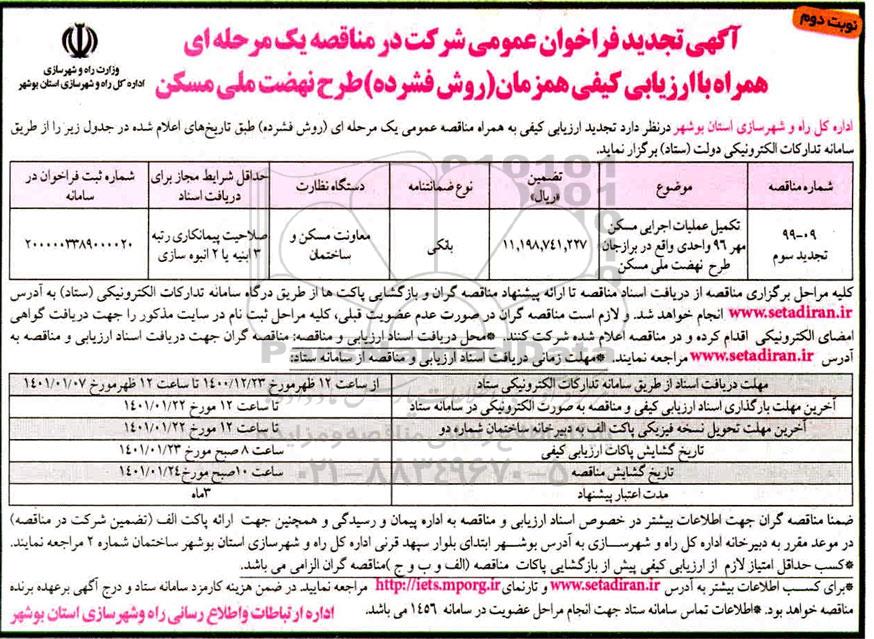 نوبت دوم
آگهی تجدید فراخوان عمومی شرکت در مناقصه یک مرحله ای
همراه با ارزیابی کیفی همزمان (روش فشرده) طرح نهضت ملی مسکن
وزارت راه و شهرسازی
اداره کل راه و شهرسازی استان بوشهر
اداره کل راه و شهرسازی استان بوشهر درنظر دارد تجدید ارزیابی کیفی به همراه مناقصه عمومی یک مرحله ای (روش فشرده) طبق تاریخ‌های اعلام شده در جدول زیر را از طریق
سامانه تدارکات الکترونیکی دولت (ستاد) برگزار نماید.
شماره مناقصه | موضوع | تضمین «ریال» | نوع ضمانتنامه | دستگاه نظارت | حداقل شرایط مجاز برای دریافت اسناد | شماره ثبت فراخوان در سامانه
۹۹-۰۹ تجدید سوم | تکمیل عملیات اجرایی مسکن مهر ۹۶ واحدی واقع در برازجان طرح نهضت ملی مسکن | ۱۱,۱۹۸,۷۴۱,۲۲۷ | بانکی | معاونت مسکن و ساختمان | صلاحیت پیمانکاری رتبه ۳ ابنیه یا ۲ انبوه سازی | ۲۰۰۰۰۰۳۳۸۹۰۰۰۰۲۰
کلیه مراحل برگزاری مناقصه از دریافت اسناد مناقصه تا ارائه پیشنهاد مناقصه گران و بازگشایی پاکت ها از طریق درگاه سامانه تدارکات الکترونیکی (ستاد) به آدرس
www.setadiran.ir انجام خواهد شد. و لازم است مناقصه گران در صورت عدم عضویت قبلی، کلیه مراحل ثبت نام در سایت مذکور را جهت دریافت گواهی
امضای الکترونیکی اقدام کرده و در مناقصه اعلام شده شرکت کنند. *محل دریافت اسناد ارزیابی و مناقصه: مناقصه گران جهت دریافت اسناد ارزیابی و مناقصه به
آدرس www.setadiran.ir مراجعه نمایند. *مهلت زمانی دریافت اسناد ارزیابی و مناقصه از سامانه ستاد:
مهلت دریافت اسناد از طریق سامانه تدارکات الکترونیکی ستاد | از ساعت ۱۲ ظهر مورخ ۱۴۰۰/۱۲/۲۳ تا ساعت ۱۲ ظهر مورخ ۱۴۰۱/۰۱/۰۷
آخرین مهلت بارگذاری اسناد ارزیابی کیفی و مناقصه به صورت الکترونیکی در سامانه ستاد | تا ساعت ۱۲ مورخ ۱۴۰۱/۰۱/۲۲
آخرین مهلت تحویل نسخه فیزیکی پاکت الف به دبیرخانه ساختمان شماره دو | تا ساعت ۱۲ مورخ ۱۴۰۱/۰۱/۲۲
تاریخ گشایش پاکات ارزیابی کیفی | ساعت ۸ صبح مورخ ۱۴۰۱/۰۱/۲۳
تاریخ گشایش مناقصه | ساعت ۱۰صبح مورخ ۱۴۰۱/۰۱/۲۴
مدت اعتبار پیشنهاد | ۳ماه
۰۲۱-۸۸۳۴۹۶۷۰-۵
ضمنا مناقصه گران جهت اطلاعات بیشتر در خصوص اسناد ارزیابی و مناقصه به اداره پیمان و رسیدگی و همچنین جهت ارائه پاکت الف (تضمین شرکت در مناقصه)
در موعد مقرر به دبیرخانه اداره کل راه و شهرسازی به آدرس بوشهر ابتدای بلوار سپهد قرنی اداره کل راه و شهرسازی استان بوشهر ساختمان شماره ۲ مراجعه نمایند.
*کسب حداقل امتیاز لازم از ارزیابی کیفی پیش از بازگشایی پاکات مناقصه (الف و ب و ج) مناقصه گران الزامی می باشد.
*برای کسب اطلاعات بیشتر به آدرس www.setadiran.ir و تارنمای http://iets.mporg.ir مراجعه نمایید. در ضمن هزینه کارمزد سامانه ستاد و درج آگهی برعهده برنده
مناقصه خواهد بود. *اطلاعات تماس سامانه ستاد جهت انجام مراحل عضویت در سامانه ۱۴۵۶ می باشد.
اداره ارتباطات واطلاع رسانی راه وشهرسازی استان بوشهر